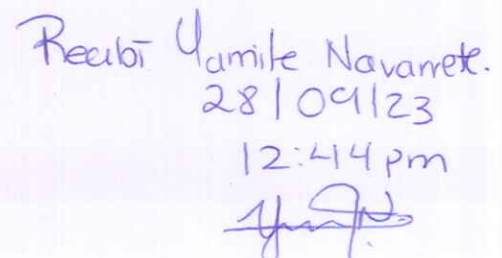 Recibí Yamile Navarrete.
28/09/23
12:44 pm